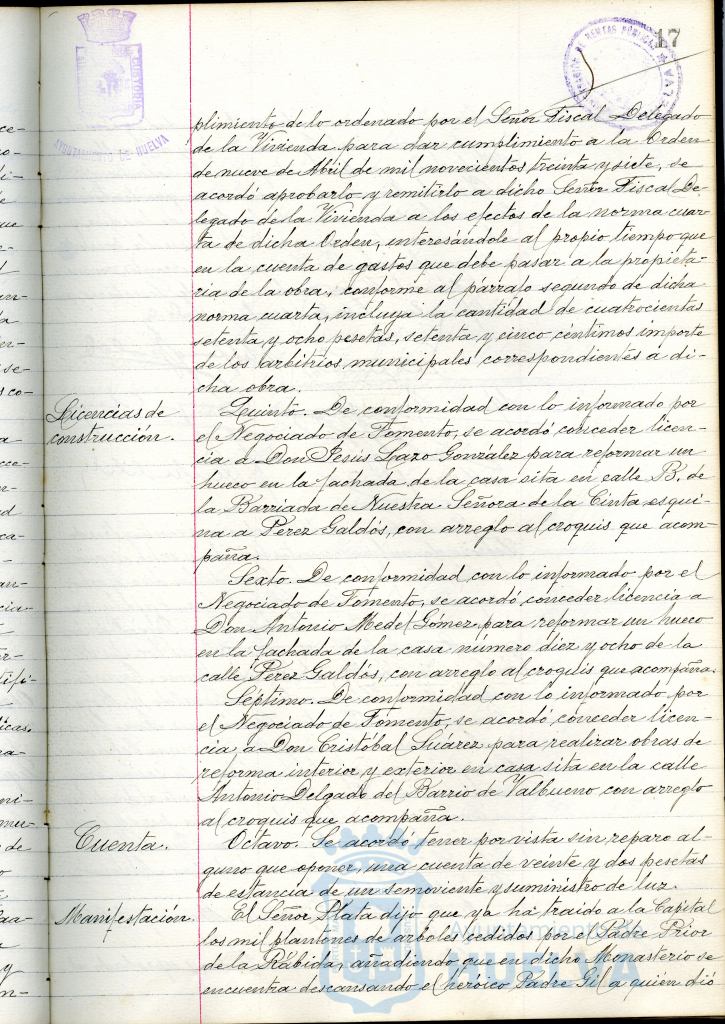 17
AYUNTAMIENTO DE HUELVA
plimiento de lo ordenado por el Señor Fiscal Delegado
de la Vivienda para dar cumplimiento a la Orden
de nueve de Abril de mil novecientos treinta y siete, se
acordó aprobarlo y remitirlo a dicho Señor Fiscal De-
legado de la Vivienda a los efectos de la norma cuar-
ta de dicha Orden, interesándole al propio tiempo que
en la cuenta de gastos que debe pasar a la propieta-
ria de la obra, conforme al párrafo segundo de dicha
norma cuarta, incluya la cantidad de cuatrocientas
setenta y ocho pesetas, setenta y cinco céntimos importe
de los arbitrios municipales correspondientes a di-
cha obra.
Licencias de
construcción.
Quinto. De conformidad con lo informado por
el Negociado de Fomento, se acordó conceder licen-
cia a Don Jesús Lazo González para reformar un
hueco en la fachada de la casa sita en calle B. de
la Barriada de Nuestra Señora de la Cinta esqui-
na a Pérez Galdós, con arreglo al croquis que acom-
paña.
Sexto. De conformidad con lo informado por el
Negociado de Fomento, se acordó conceder licencia a
Don Antonio Medel Gómez para reformar un hueco
en la fachada de la casa número diez y ocho de la
calle Pérez Galdós, con arreglo al croquis que acompaña.
Séptimo. De conformidad con lo informado por
el Negociado de Fomento, se acordó conceder licen-
cia a Don Cristóbal Suárez para realizar obras de
reforma interior y exterior en casa sita en la calle
Antonio Delgado del Barrio de Valbueno con arreglo
al croquis que acompaña.
Cuenta.
Octavo. Se acordó tener por vista sin reparo al-
guno que oponer, una cuenta de veinte y dos pesetas
de estancia de un semoviente y suministro de luz.
Manifestación.
El Señor Plata dijo que ya ha traido a la Capital
los mil plantones de árboles cedidos por el Padre Prior
de la Rábida, añadiendo que en dicho Monasterio se
encuentra descansando el heróico Padre Gil a quien dió
Ayuntamiento de
HUELVA